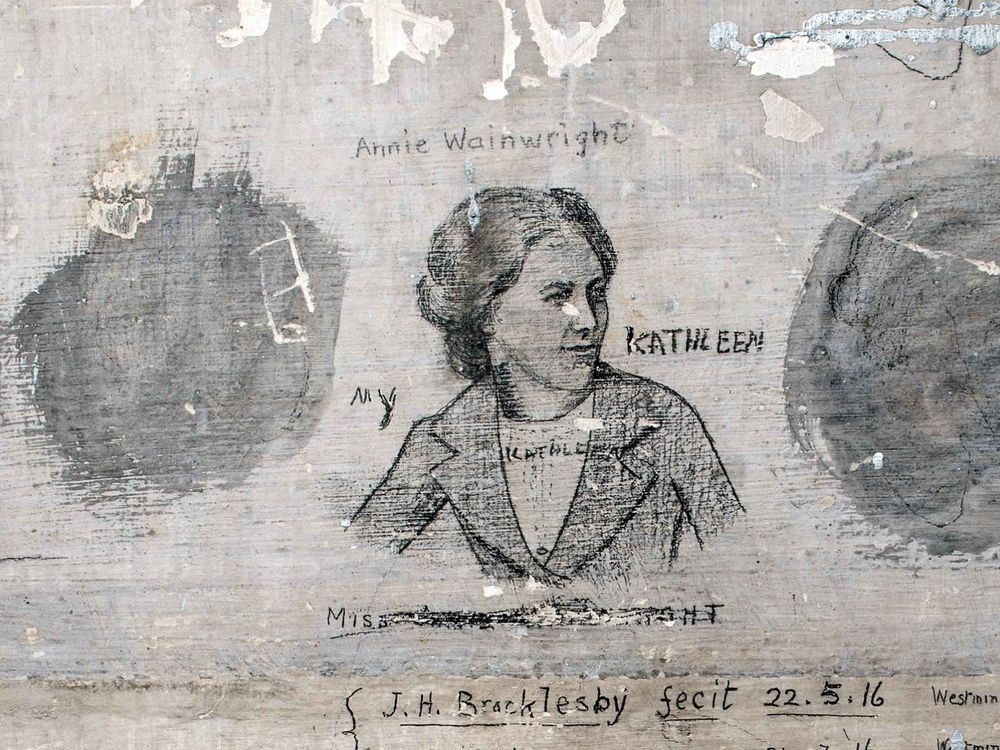 Annie Wainwright
KATHLEEN
My
KATHLEEN
Miss
J.H. Brocklesby fecit 22.5.16